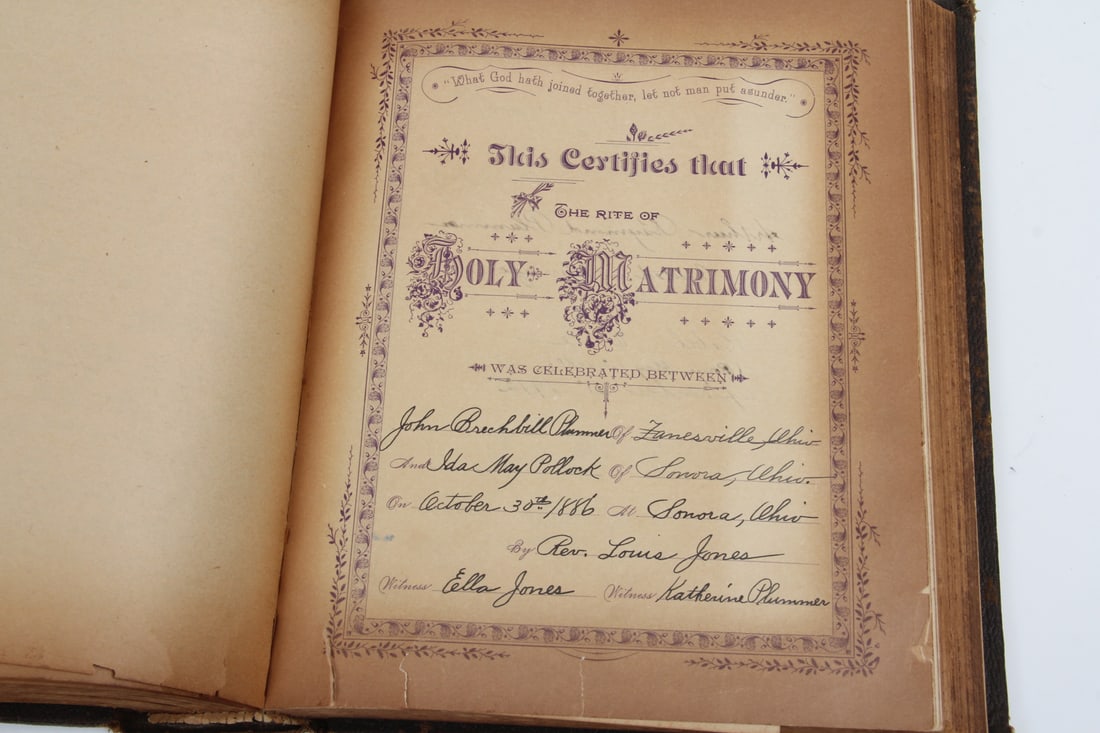 "What God hath joined together, let not man put asunder."
This Certifies that
THE RITE OF
HOLY MATRIMONY
WAS CELEBRATED BETWEEN
John Brechbill Plummer Of Zanesville, Ohio
And Ida May Pollock Of Sonora, Ohio.
On October 30th 1886 At Sonora, Ohio
By Rev. Louis Jones
Witness Ella Jones Witness Katherine Plummer